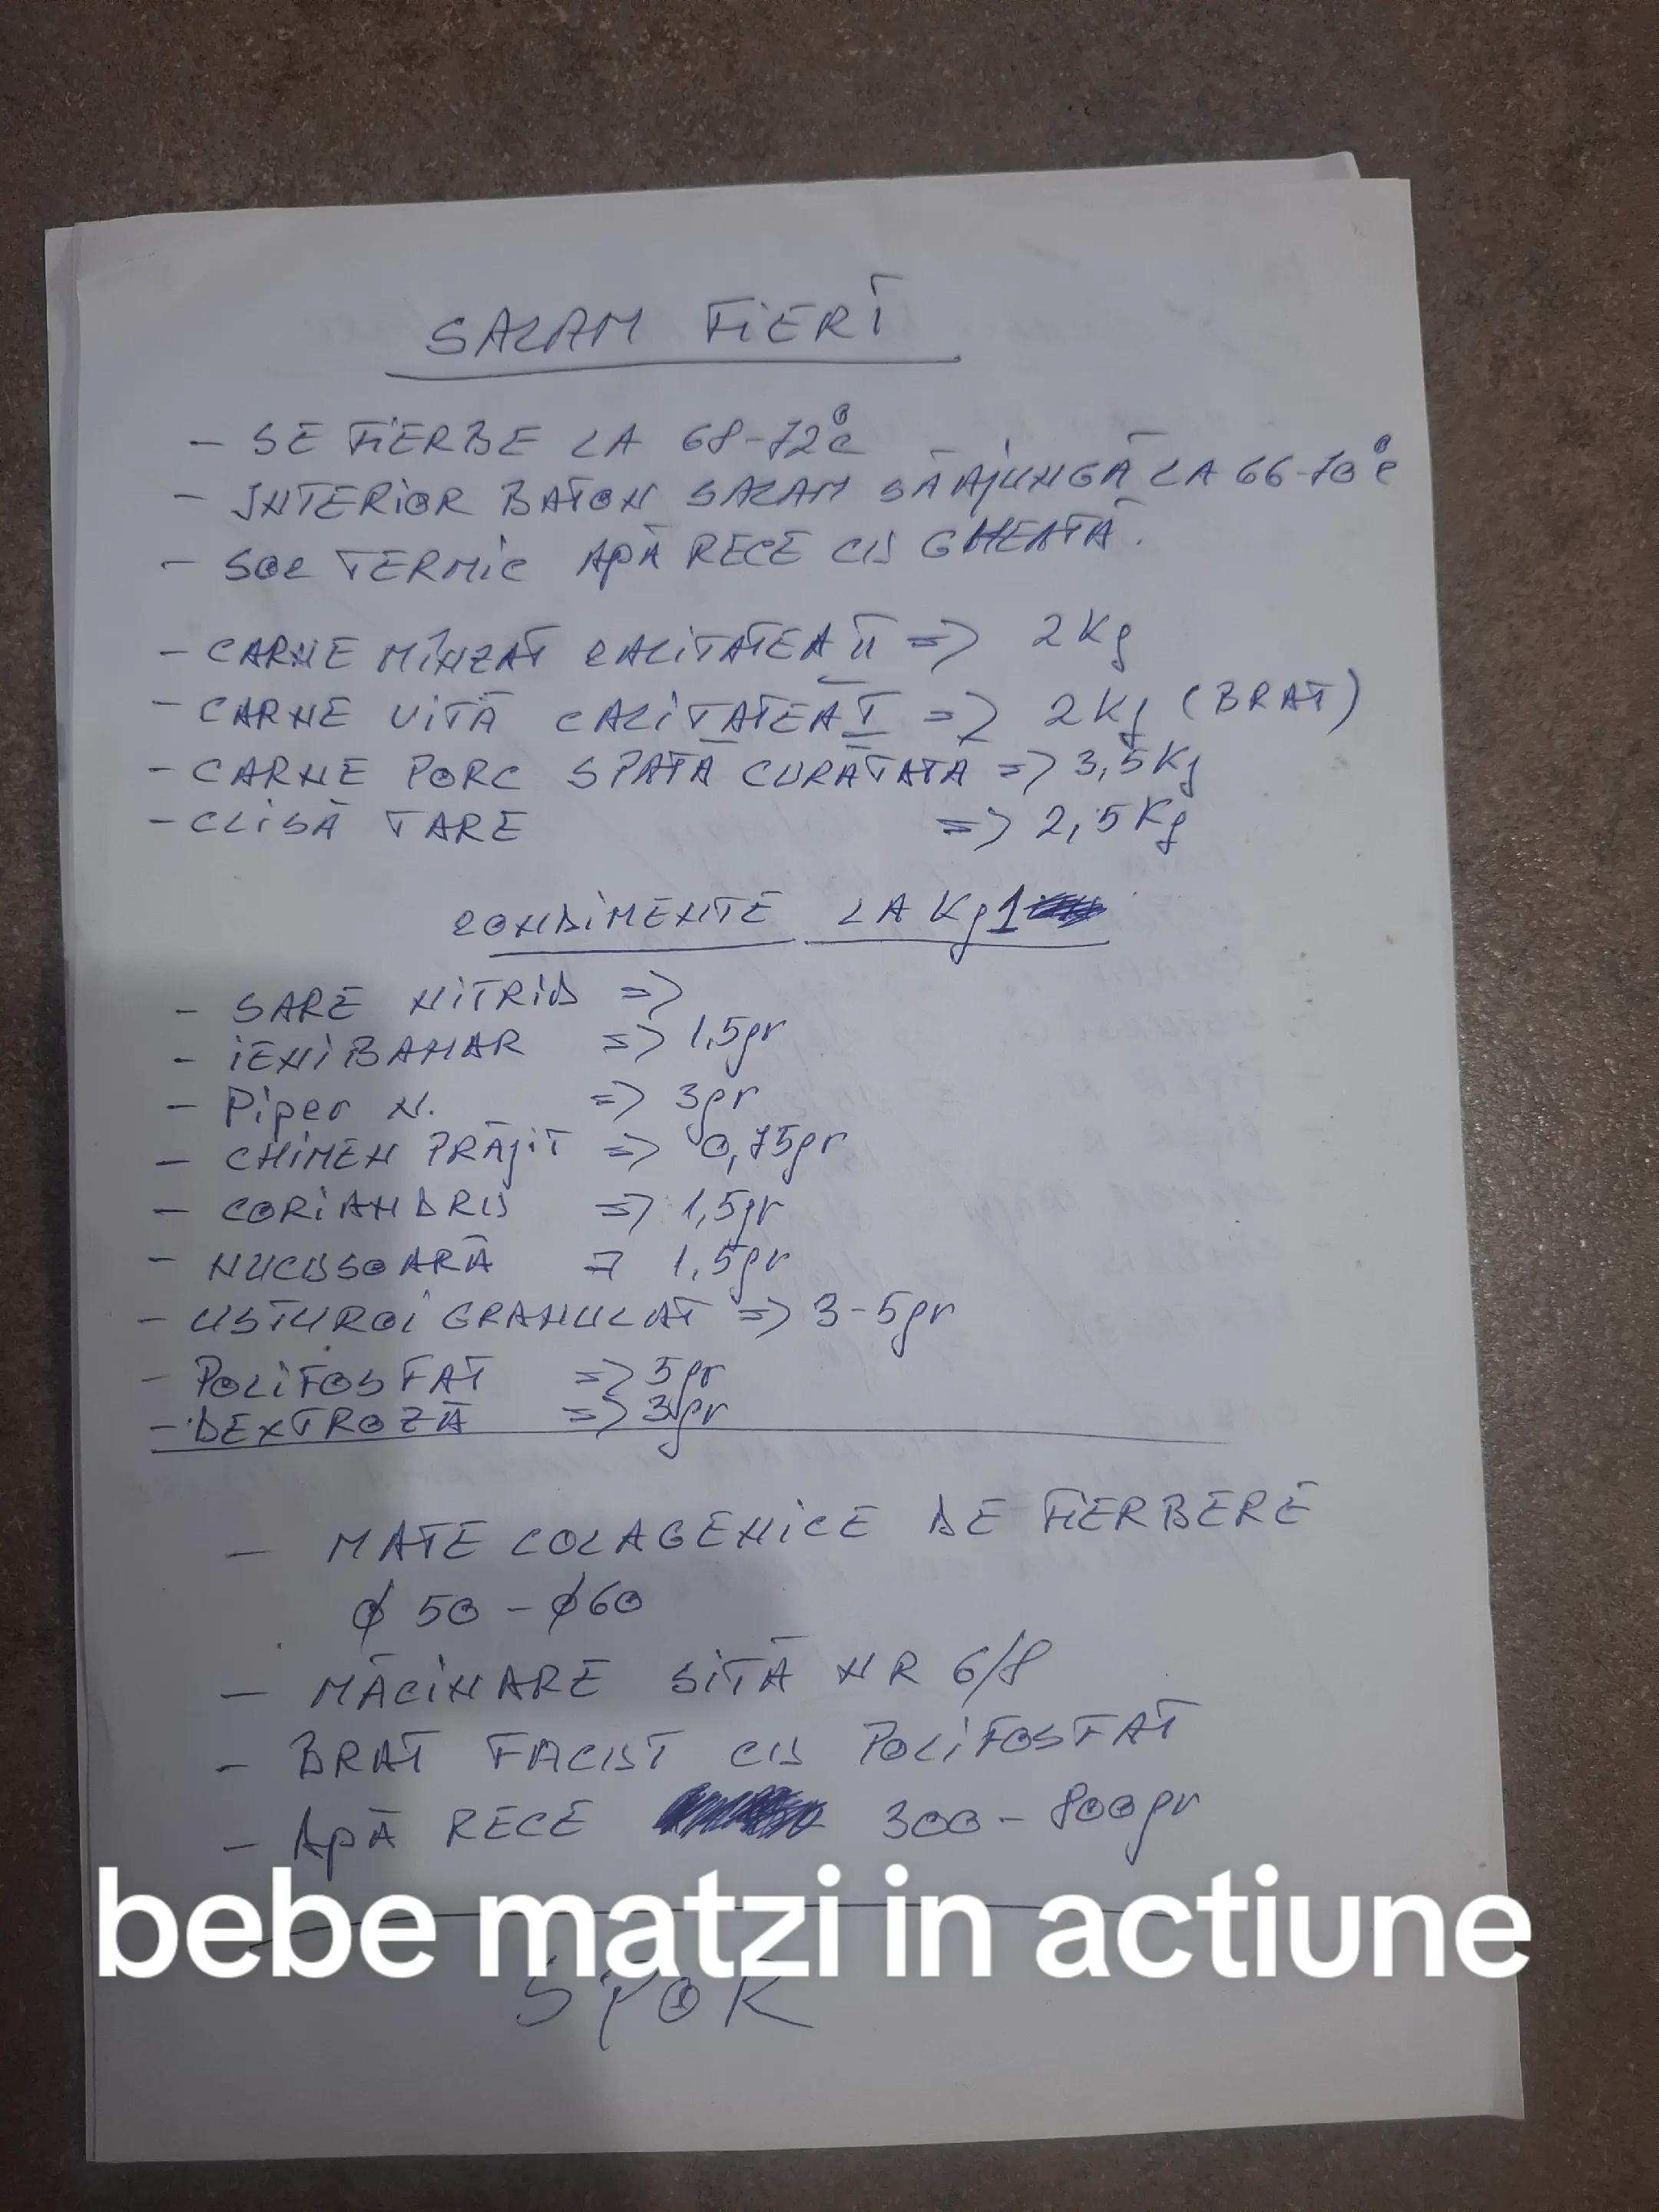 SALAM FIERT
- SE FIERBE LA 68-72°C
- INTERIOR BATON SALAM SĂ AJUNGĂ LA 66-70°C
- SOC TERMIC APĂ RECE CU GHEATĂ.
- CARNE MÎNZAT CALITATEA II => 2Kg
- CARNE VITĂ CALITATEA I => 2Kg (BRAT)
- CARNE PORC SPATĂ CURĂTATA => 3,5Kg
- CLISĂ TARE => 2,5Kg
CONDIMENTE LA Kg 1
- SARE NITRID =>
- IENIBAHAR => 1,5gr
- Piper N. => 3gr
- CHIMEN PRĂJIT => 0,75gr
- CORIANDRU => 1,5gr
- NUCUSOARĂ => 1,5gr
- USTUROI GRANULAT => 3-5gr
- POLIFOSFAT => 5gr
- DEXTROZĂ => 3gr
- MATE COLAGENICE DE FIERBERE
ϕ 50 - ϕ60
- MĂCINARE SITĂ NR 6/8
- BRAT FACUT CU POLIFOSFAT
- APĂ RECE 300-800gr
bebe matzi in actiune